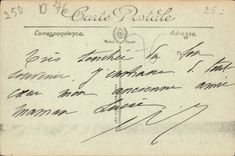 250 D 7c 25-
Carte Postale
Correspondance Adresse
Très touchée du bon
souvenir. J'embrasse de tout
cœur mon ancienne amie
maman